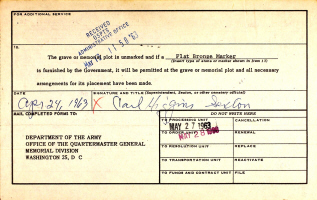 FOR ADDITIONAL SERVICE
RECEIVED
ADMINISTRATIVE OFFICE
TO
The grave or memorial plot is unmarked and if a Flat Bronze Marker
(Insert type of stone or marker shown in item 11)
is furnished by the Government, it will be permitted at the grave or memorial plot and all necessary
arrangements for its placement have been made.
DATE
SIGNATURE AND TITLE (Superintendent, Sexton, or other cemetery official)
24, 1963 X Sexton
MAIL COMPLETED FORM TO:
DO NOT WRITE HERE
DEPARTMENT OF THE ARMY
OFFICE OF THE QUARTERMASTER GENERAL
MEMORIAL DIVISION
WASHINGTON 25, D C
TO PROCESSING UNIT
MAY 27 1963
CANCELLATION
TO ORDER UNIT
MAY 28
RENEWAL
TO RESOLUTION UNIT
REPLACE
TO TRANSPORTATION UNIT
REACTIVATE
TO FUNDS AND CONTRACT UNIT
FILE